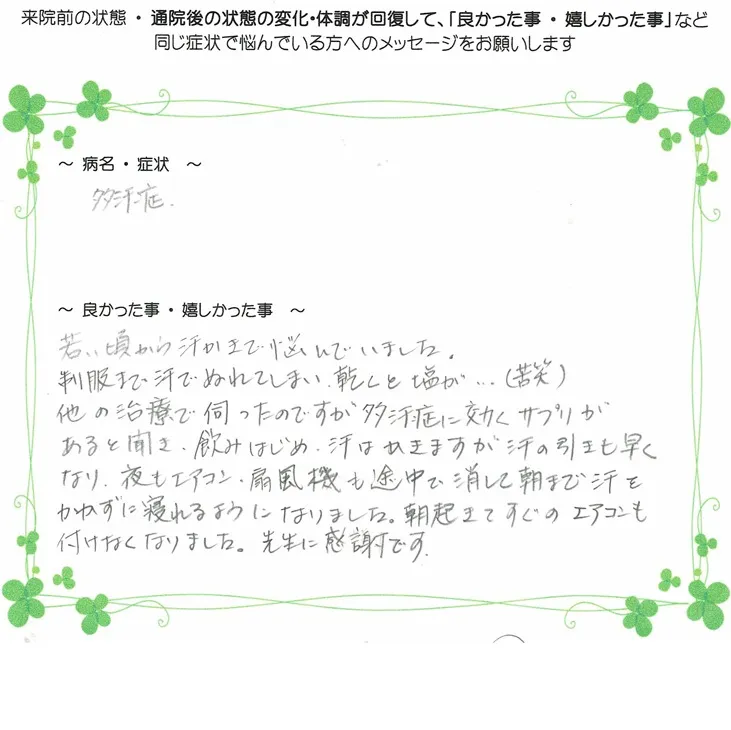 来院前の状態・通院後の状態の変化・体調が回復して、「良かった事・嬉しかった事」など
同じ症状で悩んでいる方へのメッセージをお願いします
～ 病名・症状 ～
多汗症.
～ 良かった事・嬉しかった事 ～
若い頃から汗かきで悩んでいました。
制服まで汗でぬれてしまい、乾くと塩が…(苦笑)
他の治療で伺ったのですが多汗症に効くサプリが
あると聞き、飲みはじめ、汗はかきますが汗の引きも早く
なり、夜もエアコン・扇風機も途中で消して朝まで汗を
かかずに寝れるようになりました。朝起きてすぐのエアコンも
付けなくなりました。先生に感謝です.